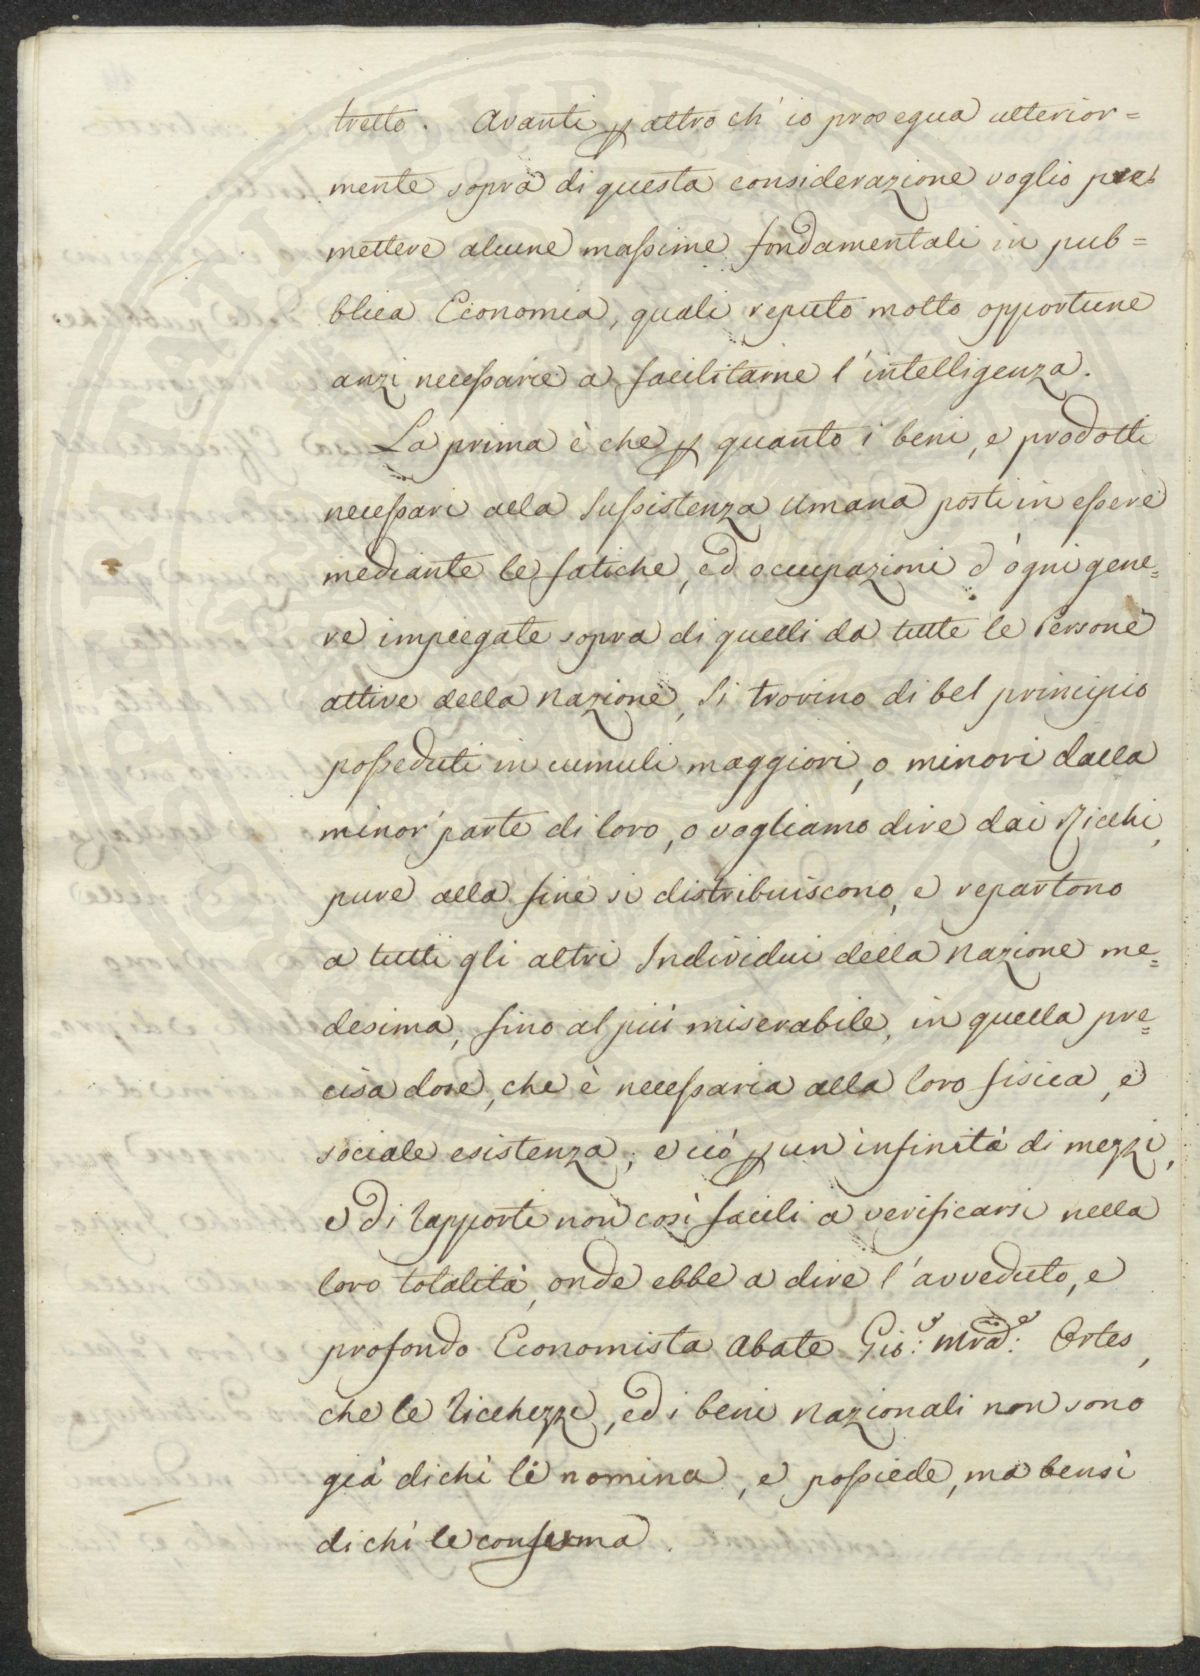 tretto. Avanti ꝑ altro ch' io prosegua ulterior=
mente sopra di questa considerazione voglio pre=
mettere alcune massime fondamentali in pub=
blica Economia, quali reputo molto opportune
anzi necessarie a facilitarne l'intelligenza.
La prima è che ꝑ quanto i beni, e prodotti
necessari alla Sussistenza Umana posti in essere
mediante le fatiche, ed occupazioni d'ogni gene=
re impiegate sopra di quelli da tutte le Persone
attive della Nazione, Si trovino di bel principio
posseduti in cumuli maggiori, o minori dalla
minor parte di loro, o vogliamo dire dai Ricchi,
pure alla fine si distribuiscono, e repartono
a tutti gli altri Individui della Nazione me=
desima, fino al più miserabile, in quella pre=
cisa dose, che è necessaria alla loro fisica, e
sociale esistenza; e ciò ꝑ un'infinità di mezzi,
e di rapporti non così facili a verificarsi nella
loro totalità, onde ebbe a dire l'avveduto, e
profondo Economista Abate Gio: Mra: Ortes,
che le ricchezze, ed i beni Nazionali non sono
già di chi li nomina, e possiede, ma bensì
di chi le consuma.